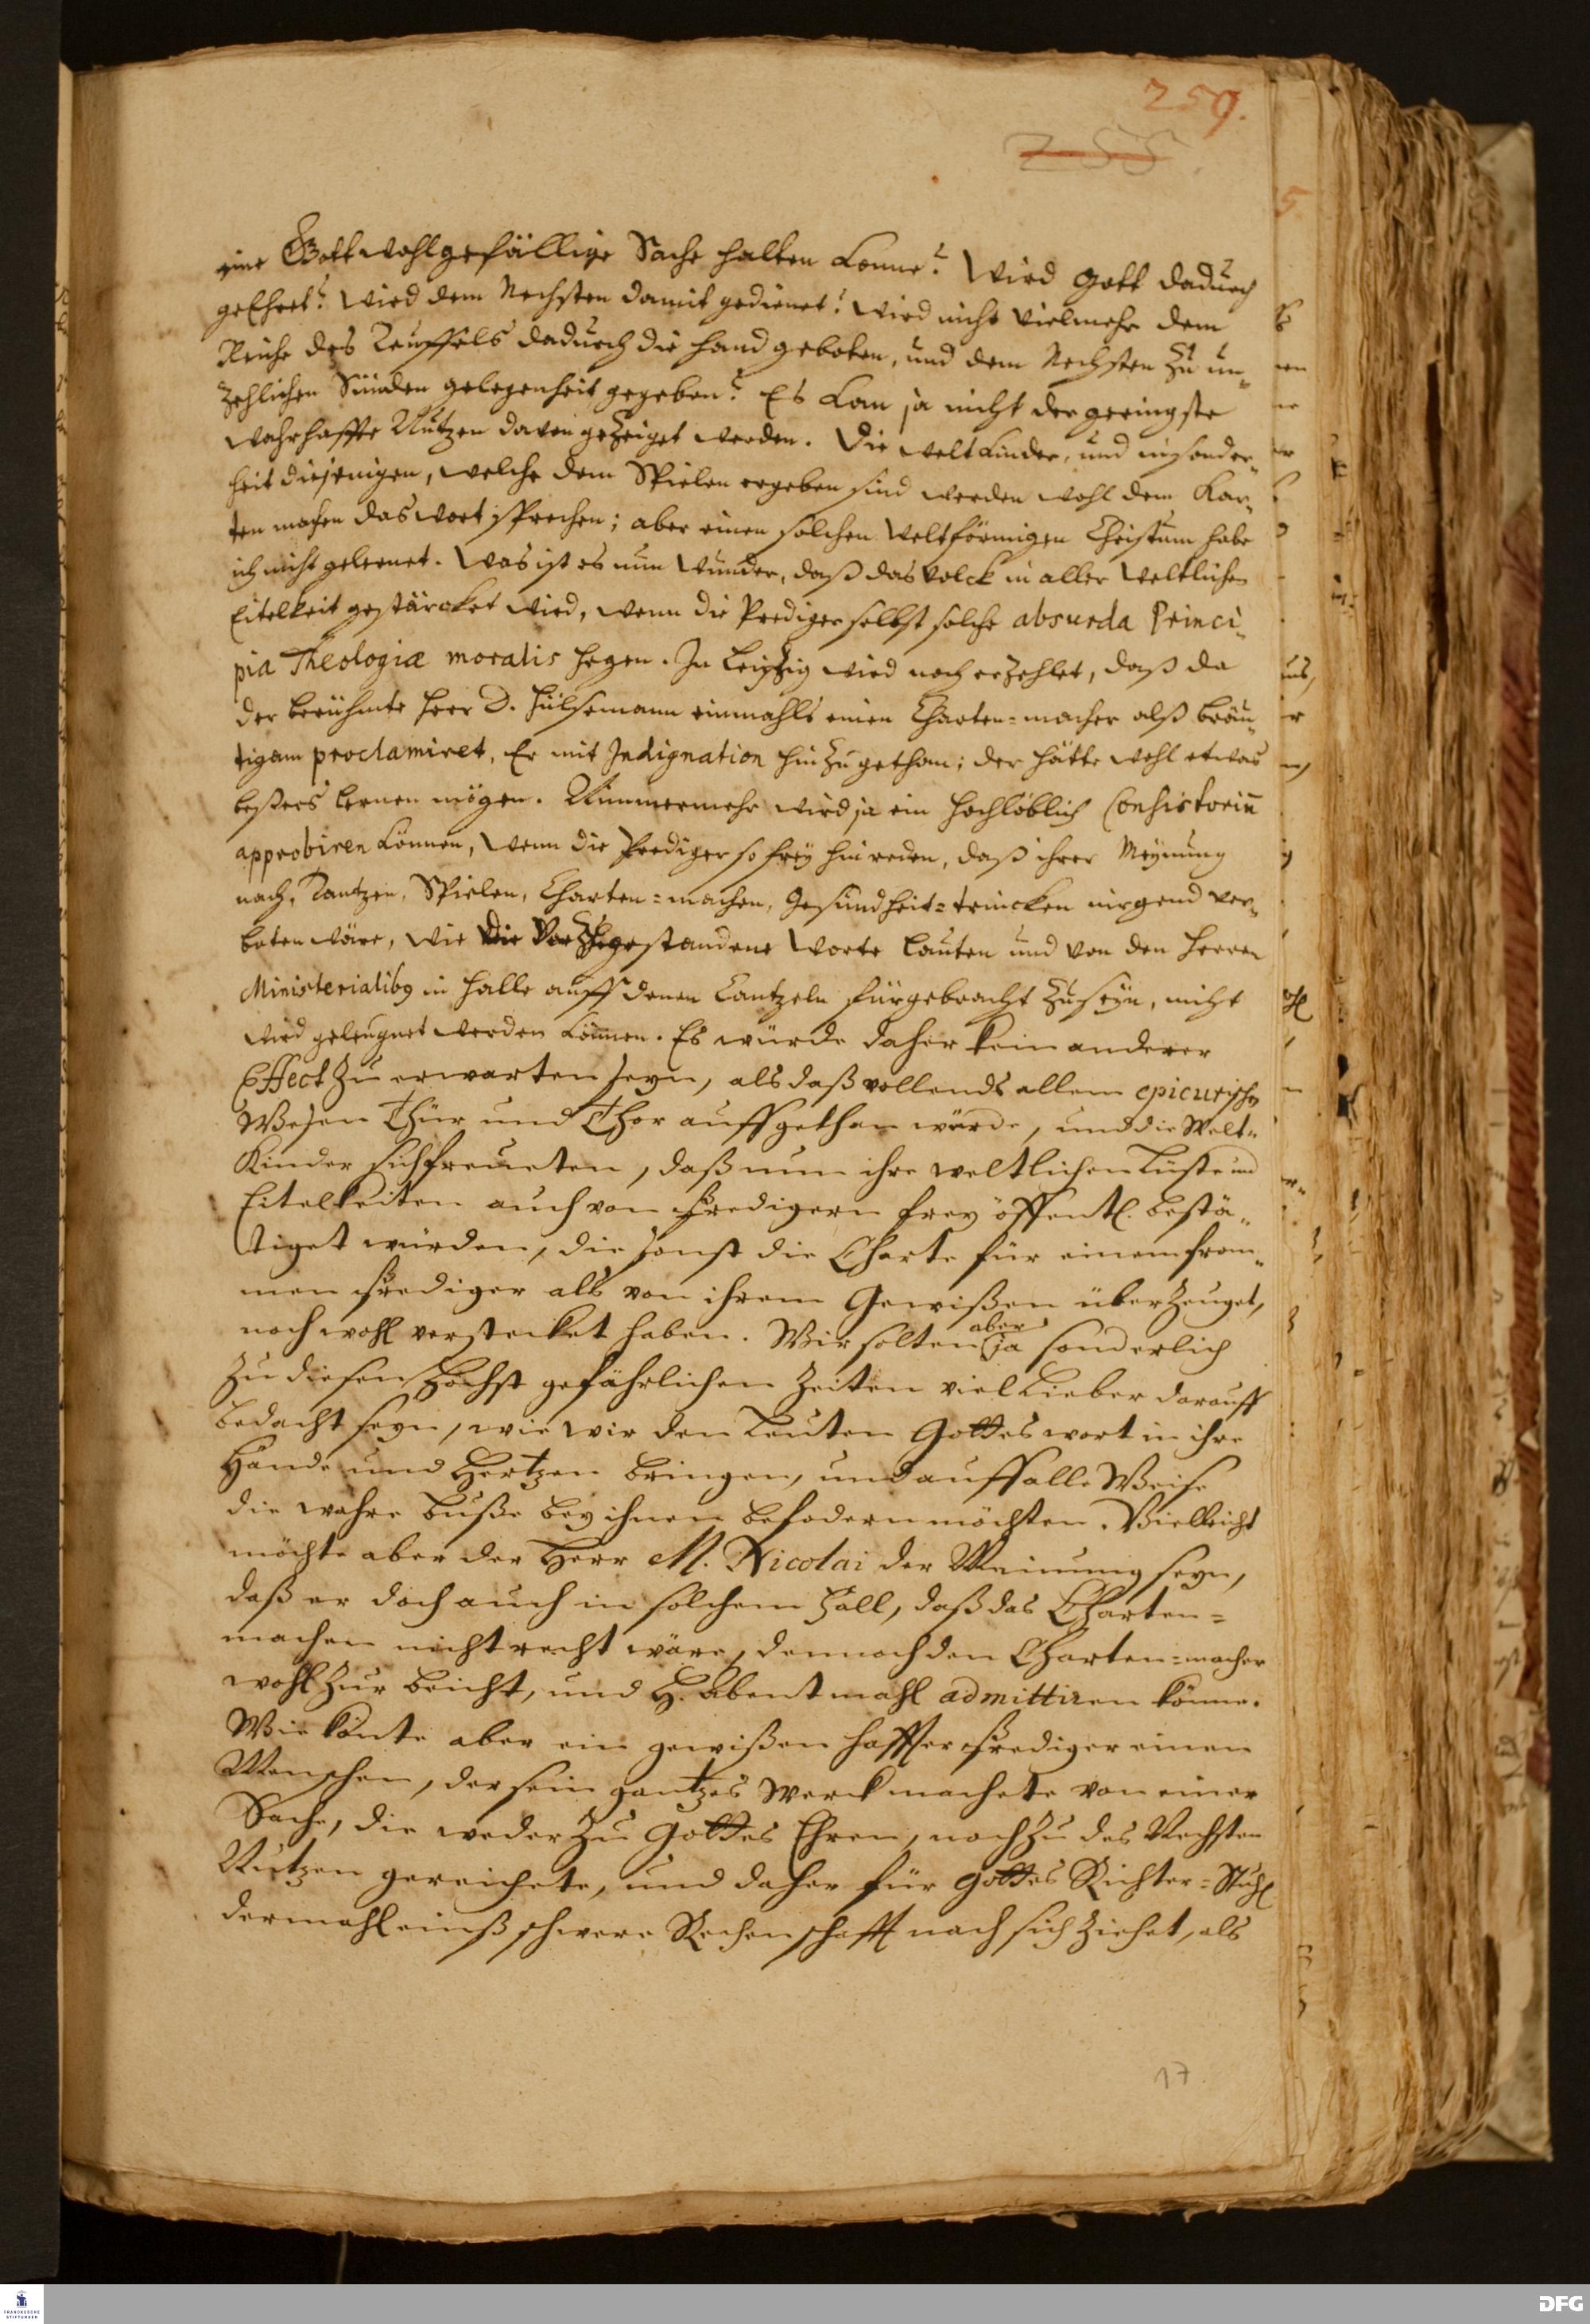 259.
255
eine Gottwohlgefällige Sache halten könne? Wird Gott dadurch
geEhret? Wird dem Nechsten damit gedienet? Wird nicht vielmehr dem
Reiche des Teuffels dadurch die hand geboten, und dem Nechsten zu un-
zehlichen Sünden gelegenheit gegeben? Es kan ja nicht der geringste
wahrhaffte Nutzen davon gezeiget werden. Die welt kinder, und insonder-
heit diejenigen, welche dem Spielen ergeben sind werden wohl dem Kar-
ten machen das wort sprechen; aber einen solchen Weltförmigen Christum habe
ich nicht gelernet. Was ist es nun Wunder, daß das Volck in aller Weltlichen
Eitelkeit gestärcket wird, wenn die Prediger selbst solche absurda Princi-
pia Theologiæ moralis hegen. In Leipzig wird noch erzehlet, daß da
der berühmte Herr D. Hülsemann einmahls einen Charten=macher alß bräu-
tigam proclamiret, Er mit Indignation hinzu gethan; der hätte wohl etwas
beßers lernen mögen. Nimmermehr wird ja ein Hochlöblich Consistoriu̅
approbiren können, wenn die Prediger so frey hin reden, daß ihrer Meynung
nach, Tantzen, Spielen, Charten=machen, Gesundheit=trincken nirgend ver-
boten wäre, wie die gestandene Worte lauten und von den Herren
Ministerialibg in Halle auff denen Cantzeln fürgebracht zu seyn, nicht
wird geleugnet werden können. Es würde daher kein anderer
Effect zu erwarten seyn, als daß vollends allem epicurischen
Wesen Thür und Thor auffgethan würde, und die Welt-
Kinder sich freueten, daß nun ihre weltlichen Lüste und
Eitelkeiten auch von Predigern frey öffentl. bestä-
tiget würden, die sonst die Charte für einem from-
men Prediger als von ihrem Gewißen überzeuget,
noch wohl verstecket haben. Wir solten aber ja sonderlich
zu diesen höchst gefährlichen Zeiten viel lieber darauff
bedacht seyn, wie wir den Leuten Gottes wort in ihre
Hände und Hertzen bringen, und auff alle Weise
die wahre Buße bey ihnen befodern möchten. Vielleicht
möchte aber der Herr M. Nicolai der Meinung seyn,
daß er doch auch in solchem Fall, daß das Charten=
machen nicht recht wäre, dennoch den Charten=macher
wohl zur Beicht, und H. Abentmahl admittiren könne.
Wie könte aber ein gewißen haffter Prediger einen
Menschen, der sein gantzes Werck machete von einer
Sache, die weder zu Gottes Ehren, noch zu des Nechsten
Nutzen gereichete, und daher für Gottes Richter=Stuhl
dermahleinß schwere Rechenschafft nach sich ziehet, als
17
FRANCKESCHE STIFTUNGEN
DFG